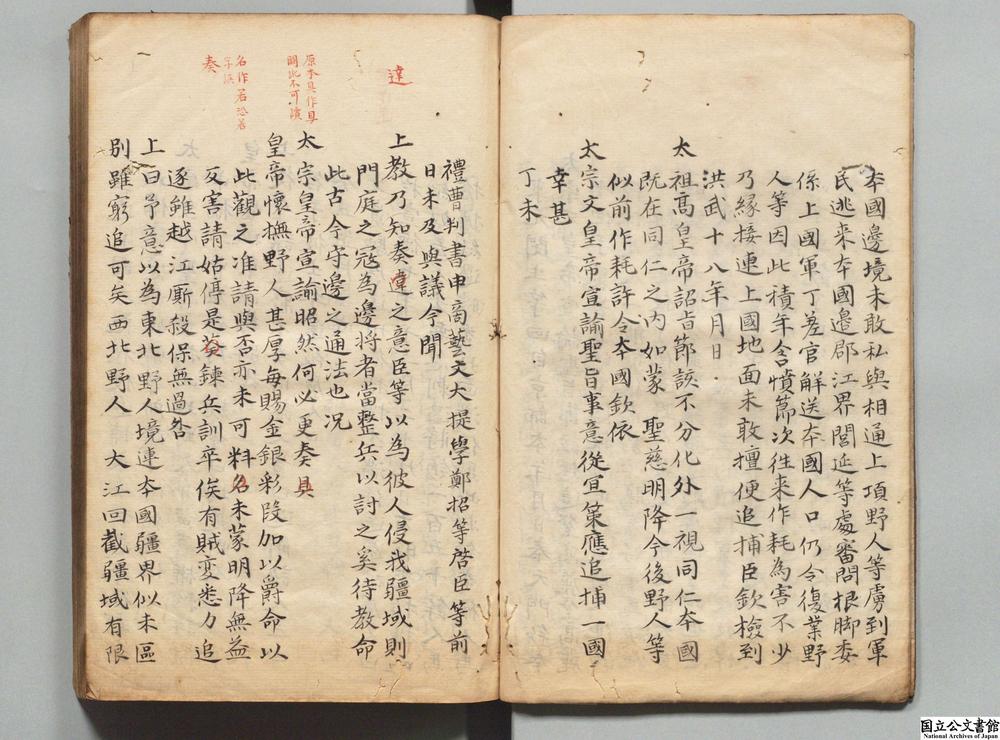 本國邊境未敢私與相通上項野人等虜到軍
民逃来本國邊郡江界閭延等處審問根脚委
係上國軍丁差官解送本國人口仍令復業野
人等因此積年含憤節次徃来作耗為害不少
乃縁接連上國地面未敢擅便追捕臣欽檢到
洪武十八年月日
太祖髙皇帝詔旨節該不分化外一視同仁本國
既在同仁之内如蒙 聖慈明降今後野人等
似前作耗許令本國欽依
太宗文皇帝宣諭聖旨事意從冝策應追捕一國
幸甚
丁未
禮曹判書申商藝文大提學鄭招等啓臣等前
日未及與議今聞
上教乃知奏達之意臣等以為彼人侵我疆域則
門庭之冦為邊将者當整兵以討之奚待教命
此古今守邊之通法也况
太宗皇帝宣諭昭然何必更奏具
皇帝懷撫野人甚厚每賜金銀彩段加以爵命以
此觀之准請與否亦未可料名未蒙明降無益
反害請姑停是葵鍊兵訓卒俟有賊変悉力追
逐雖越江厮殺保無過咎
上曰予意以為東北野人境連本國疆界似未區
別雖窮追可矣西北野人大江回截疆域有限
達
原本具作且
闕此不可讀
名作若恐若
字誤
奏
国立公文書館
National Archives of Japan